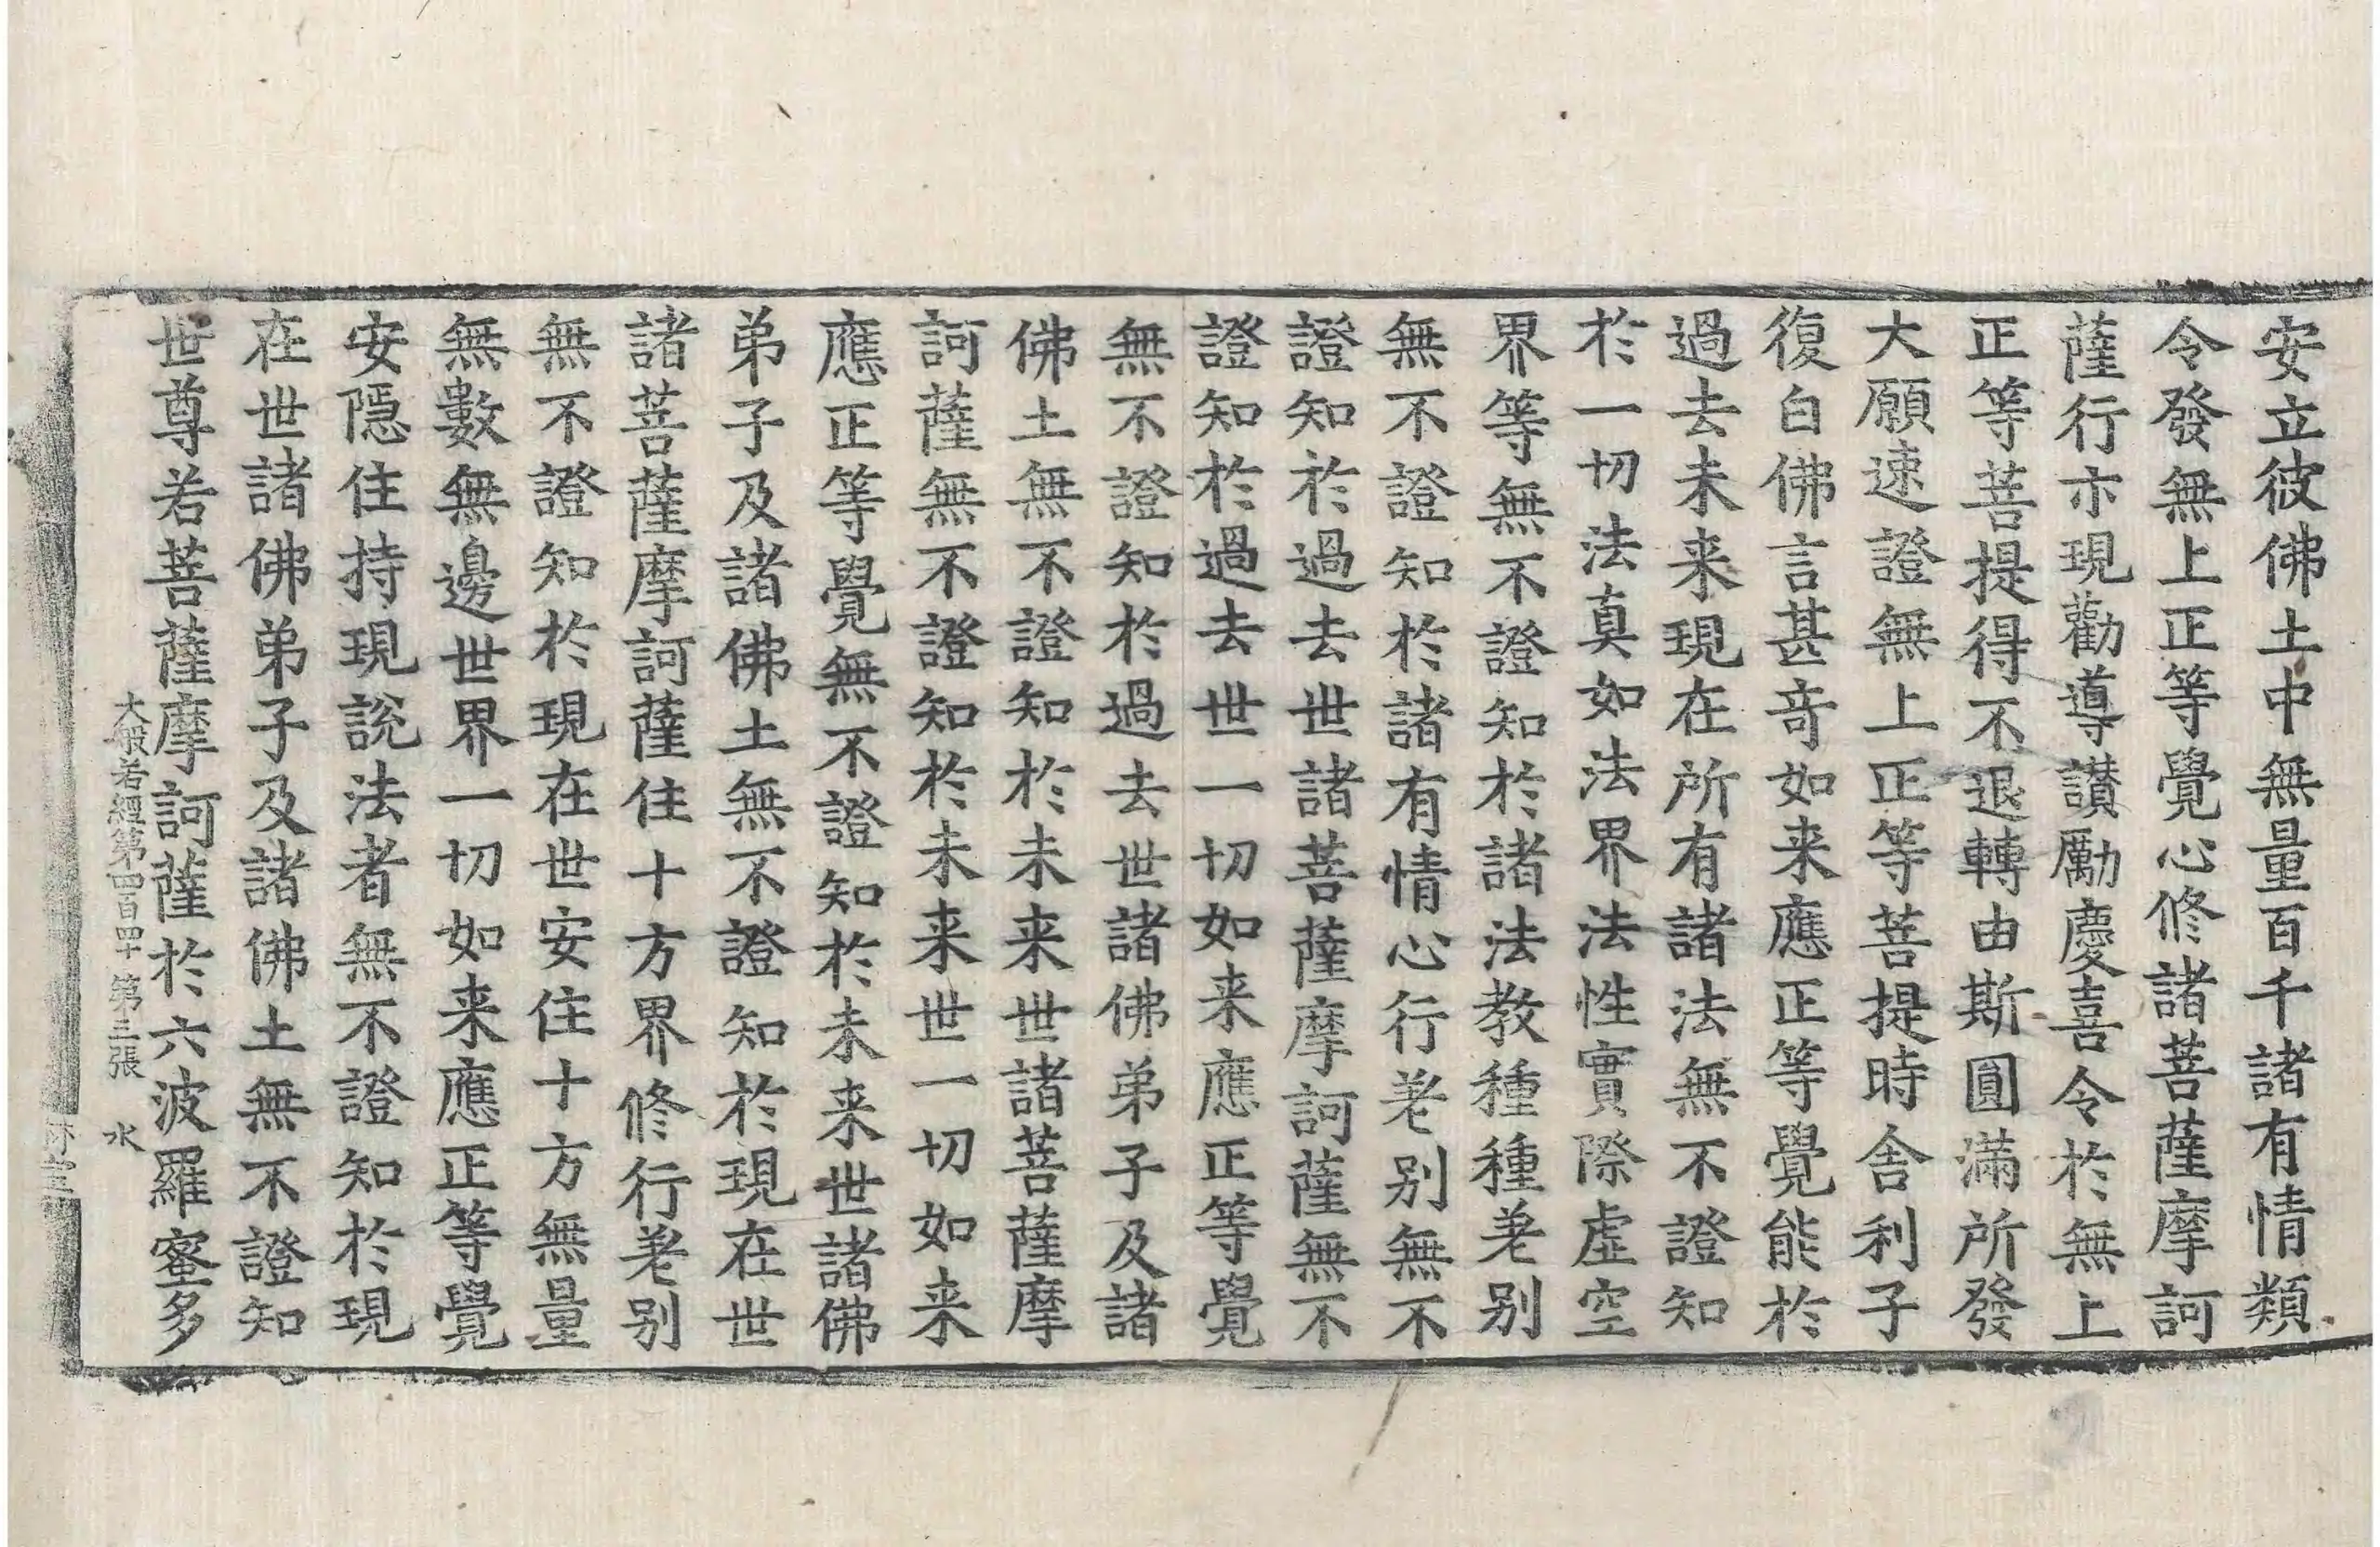 安立彼佛土中無量百千諸有情類
令發無上正等覺心修諸菩薩摩訶
薩行亦現勸導讃勵慶喜令於無上
正等菩提得不退轉由斯圓滿所發
大願速證無上正等菩提時舍利子
復白佛言甚奇如来應正等覺能於
過去未来現在所有諸法無不證知
於一切法真如法界法性實際虛空
界等無不證知於諸法教種種差別
無不證知於諸有情心行差別無不
證知於過去世諸菩薩摩訶薩無不
證知於過去世一切如来應正等覺
無不證知於過去世諸佛弟子及諸
佛土無不證知於未来世諸菩薩摩
訶薩無不證知於未来世一切如来
應正等覺無不證知於未来世諸佛
弟子及諸佛土無不證知於現在世
諸菩薩摩訶薩住十方界修行差別
無不證知於現在世安住十方無量
無數無邊世界一切如来應正等覺
安隱住持現說法者無不證知於現
在世諸佛弟子及諸佛土無不證知
世尊若菩薩摩訶薩於六波羅蜜多
大般若經第四百四十 第三張 水